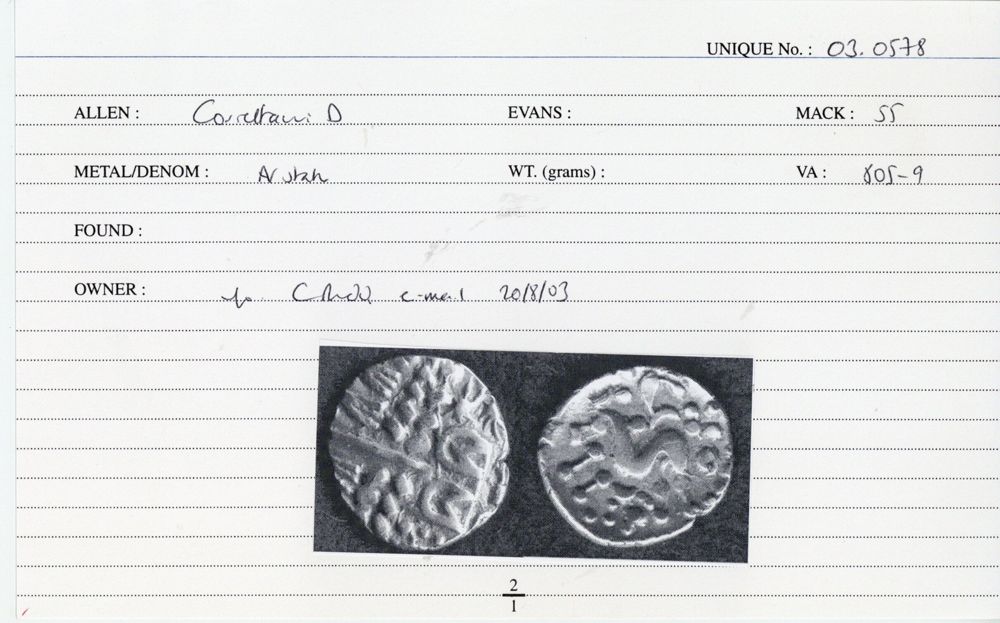 UNIQUE No. : 03.0578
ALLEN : Corieltauvi D EVANS : MACK : 55
METAL/DENOM : AV stater WT. (grams) : VA : 805-9
FOUND :
OWNER : e-mail 20/8/03
2
1